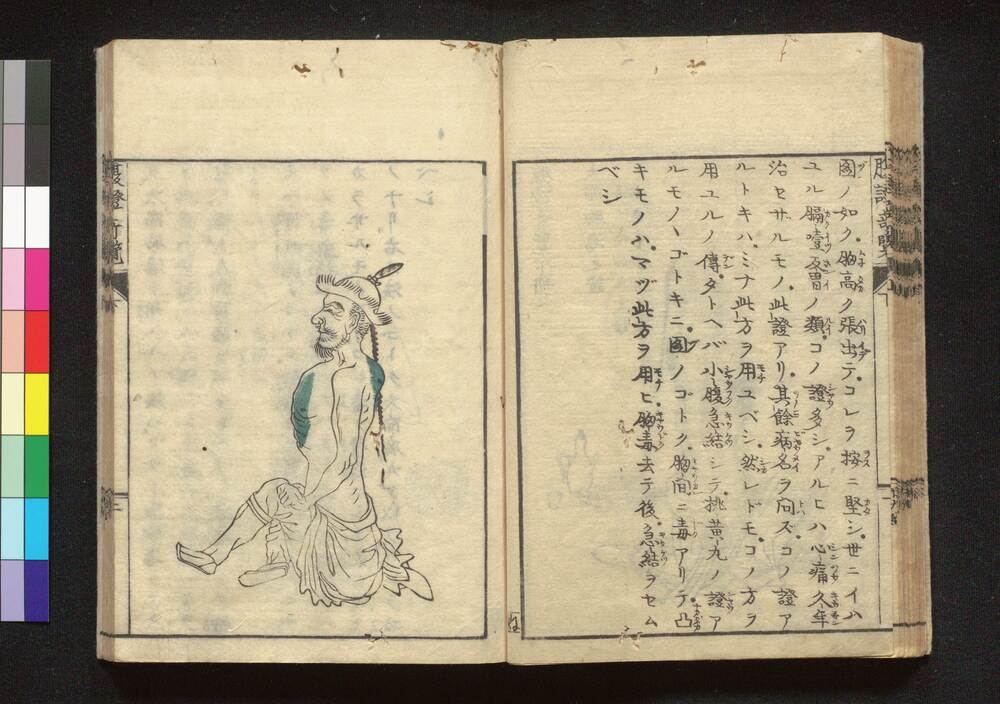 圖ノ如ク胸高ク張出テコレヲ按ニ堅シ世ニイハ
ユル膈噎反胃ノ類コノ證多シアルヒハ心痛久年
治セザルモノ此證アリ其餘病名ヲ问ズコノ證ア
ルトキハミナ此方ヲ用ユベシ然レドモコノ方ヲ
用ユルノ傳タトヘバ小腹急結シテ挑黄丸ノ證ア
ルモノヽゴトキニ圖ノゴトク胸间ニ毒アリテ凸
キモノハマヅ此方ヲ用ヒ胸毒去テ後急結ヲセム
ベシ